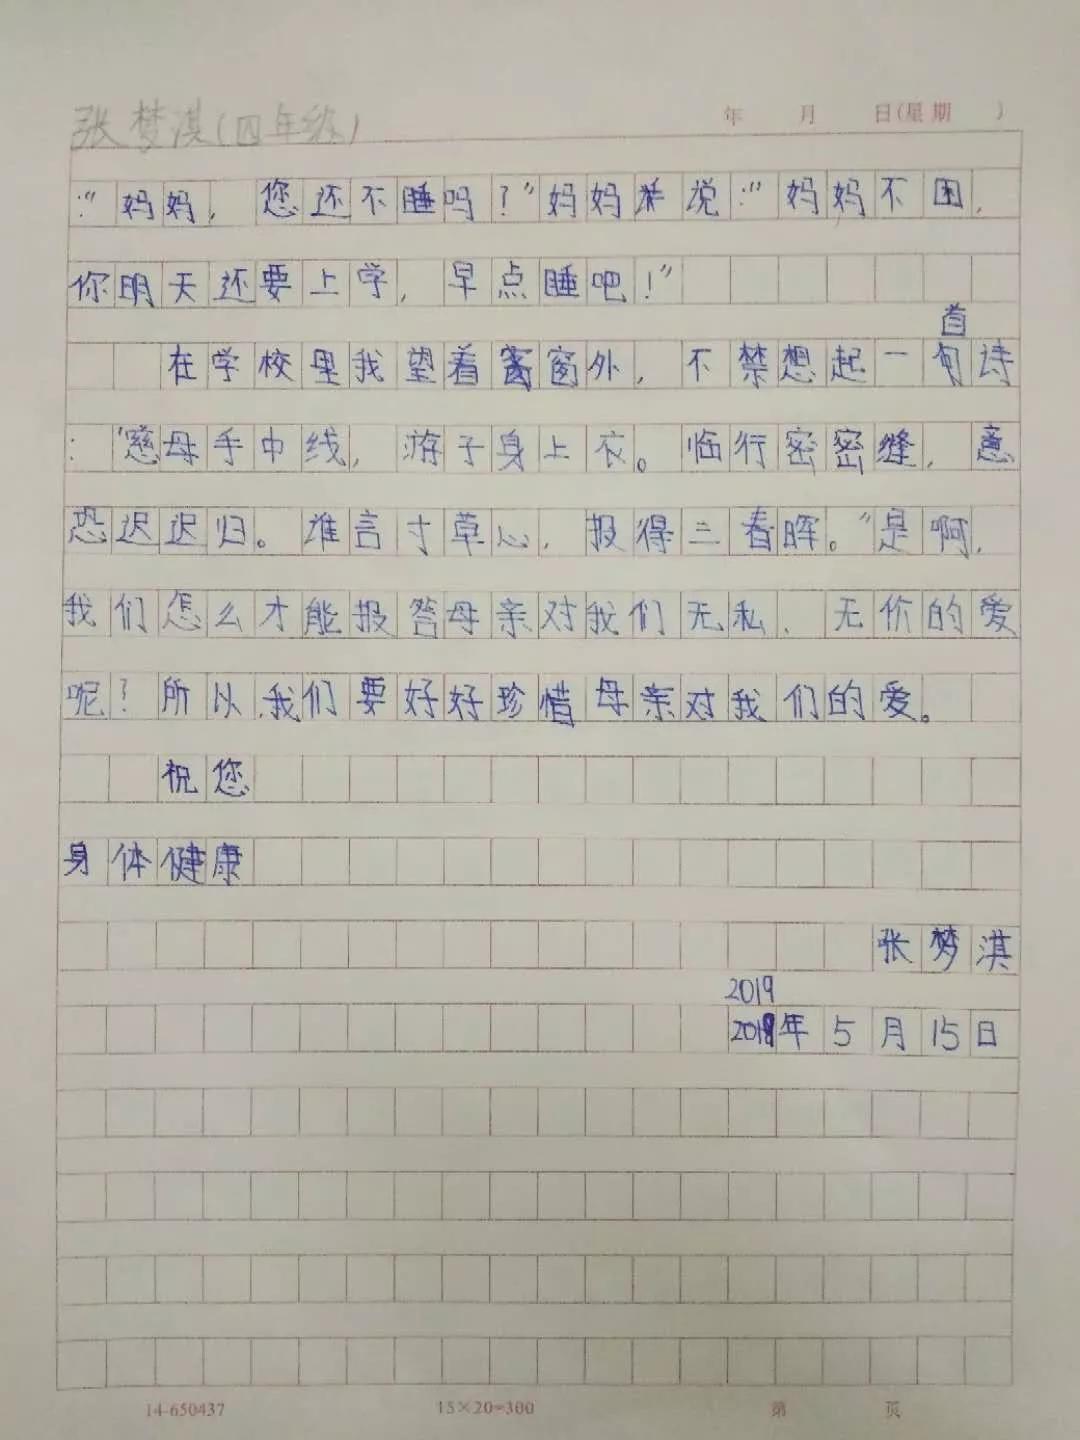 张梦淇(四年级)
年 月 日(星期 )
:"妈妈，您还不睡吗?"妈妈说:"妈妈不困，
你明天还要上学，早点睡吧!"
在学校里我望着窗外，不禁想起一首诗
:"慈母手中线，游子身上衣。临行密密缝，意
恐迟迟归。谁言寸草心，报得三春晖。"是啊，
我们怎么才能报答母亲对我们无私、无价的爱
呢?所以，我们要好好珍惜母亲对我们的爱。
祝您
身体健康
张梦淇
2019
年5月15日
14-650437 15×20=300 第 页